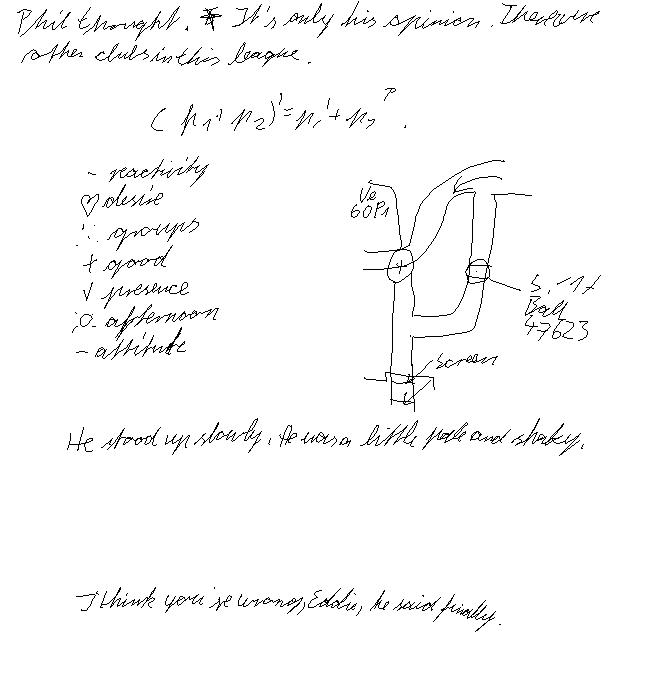 Phil thought. It's only his opinion. There were
other clubs in this league.
(p1+p2)'=p1'+p2'.
- reactivity
♡ desire
∴ groups
+ good
√ presence
afternoon
- attitute
Ve
60P1
Ball
47623
Screen
He stood up slowly. He was a little pale and shaky.
I think you're wrong, Eddie, he said finally.